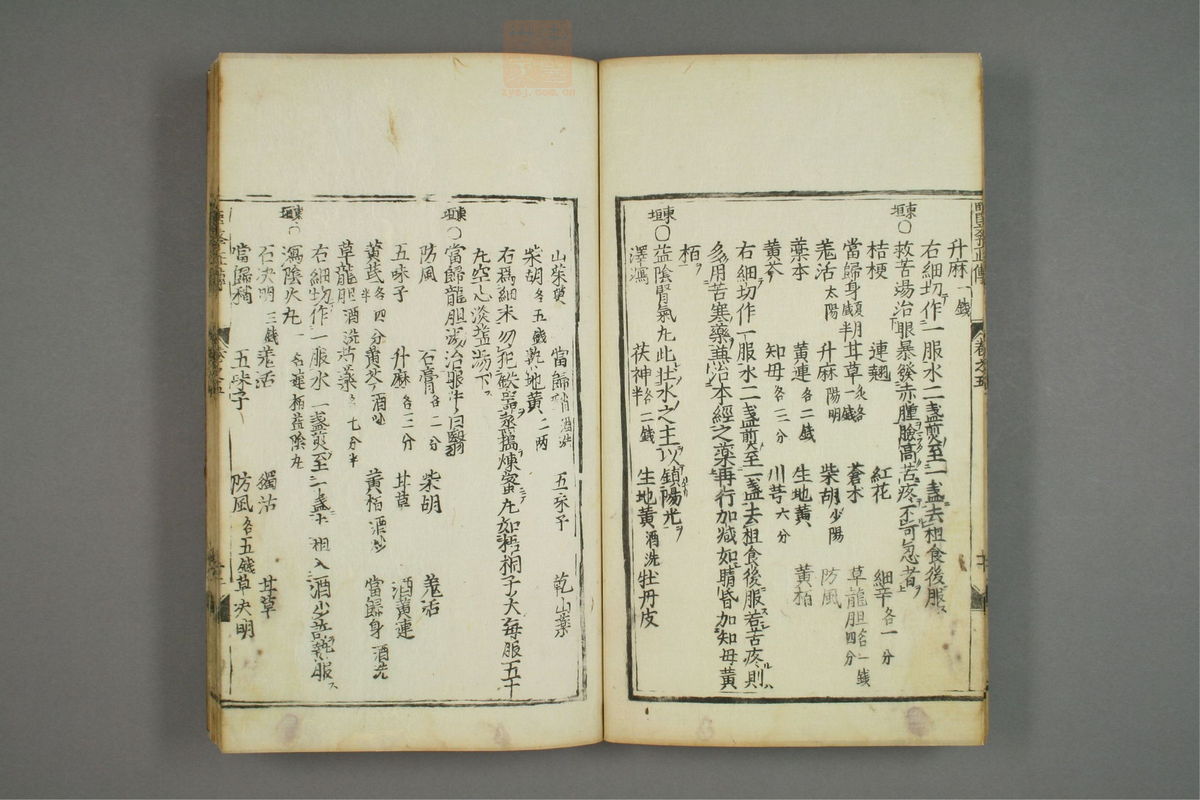 升麻一錢
右細切作一服水二盞煎至一盞去柤食後服
東垣○救苦湯治眼暴發赤腫瞼高苦疼不可忍者
桔梗 連翹 紅花 細辛各一分
當歸身夏月減半 甘草炙各一錢 蒼朮 草龍胆各一錢四分
羗活太陽 升麻陽明 柴胡少陽 防風
藁本 黃連各二錢 生地黃 黃栢
黃芩 知母各三分 川芎六分
右細切作一服水二盞煎至一盞去柤食後服若苦疼則
多用苦寒藥兼治本經之藥再行加減如睛昏加知母黃
栢
東垣○益陰腎氣丸此壯水之主以鎮陽光
澤瀉 茯神各二錢半 生地黃酒洗 牡丹皮
山茱萸 當歸稍酒洗 五味子 乾山藥
柴胡各五錢 熟地黃二兩
右爲細末勿犯鐵器蒸搗煉蜜丸如梧桐子大每服五十
丸空心淡盐湯下
東垣○當歸龍胆湯治眼中白翳
防風 石膏各二分 柴胡 羗活
五味子 升麻各三分 甘草 酒黃連
黃芪各四分半 黃芩酒炒 黃栢酒炒 當歸身酒洗
草龍胆酒洗 芍藥各七分半
右細切作一服水一盞煎至一盞去柤入酒少許熱服
東垣○瀉陰火丸一名連栢益陰丸
石决明三錢 羗活 獨活 甘草
當歸稍 五味子 防風各五錢 草决明